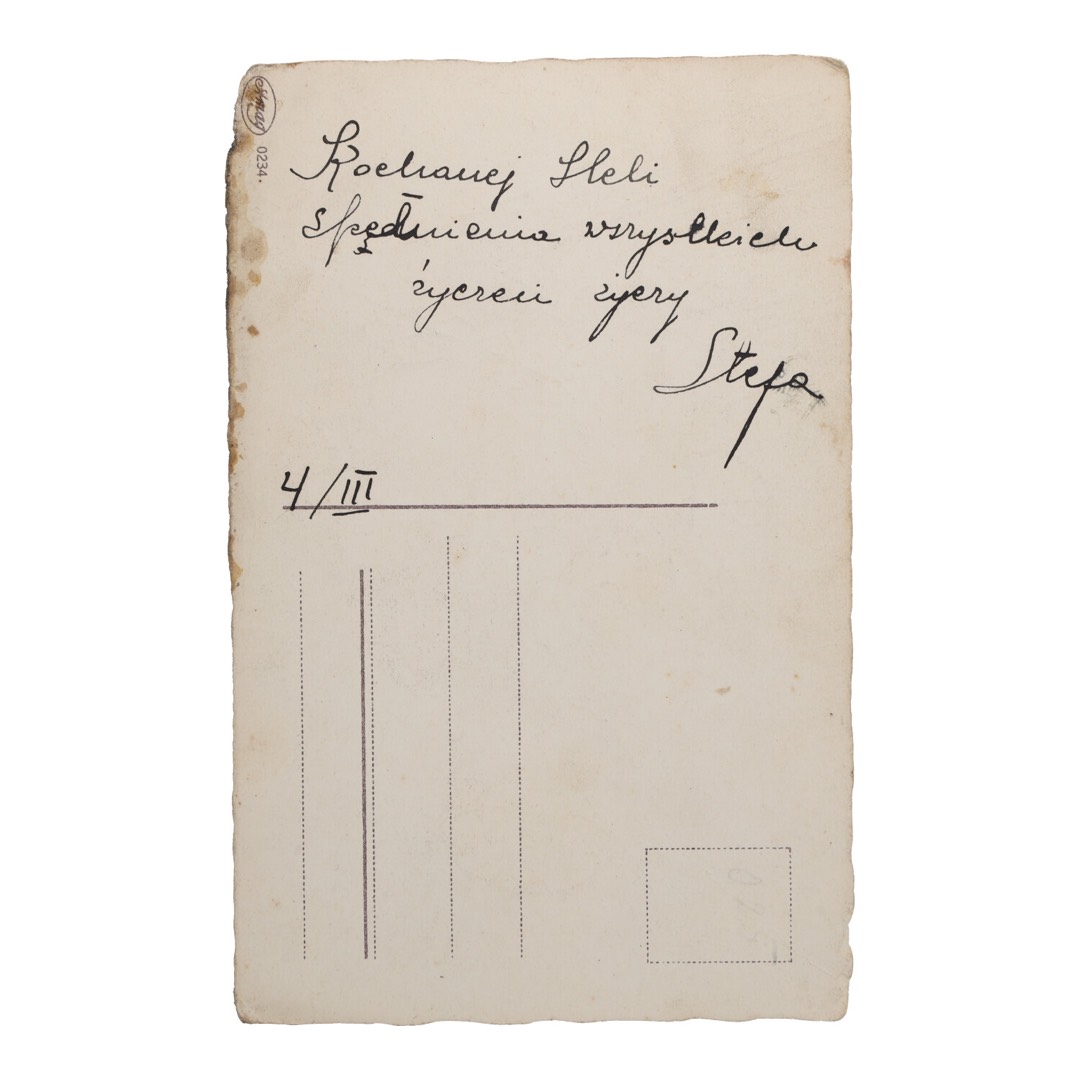 Kochanej Heli
spełnienia wszystkich
życzeń życzy
Stefa
4/III
0234.